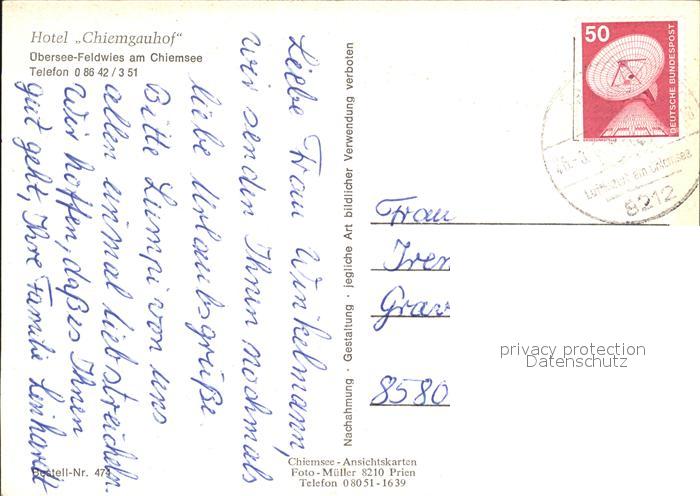 Hotel „Chiemgauhof“
Übersee-Feldwies am Chiemsee
Telefon 0 86 42 / 3 51
Liebe Frau Winkelmann,
wir senden Ihnen nochmals
liebe Urlaubsgrüße.
Bitte Lumpi von uns
allen einmal liebstreicheln.
Wir hoffen, daß es Ihnen
gut geht, Ihre Familie Linhardt
Bestell-Nr. 474
Nachahmung · Gestaltung · jegliche Art bildlicher Verwendung verboten
Chiemsee-Ansichtskarten
Foto-Müller 8210 Prien
Telefon 08051-1639
50
DEUTSCHE BUNDESPOST
8212
Frau
8580
privacy protection
Datenschutz